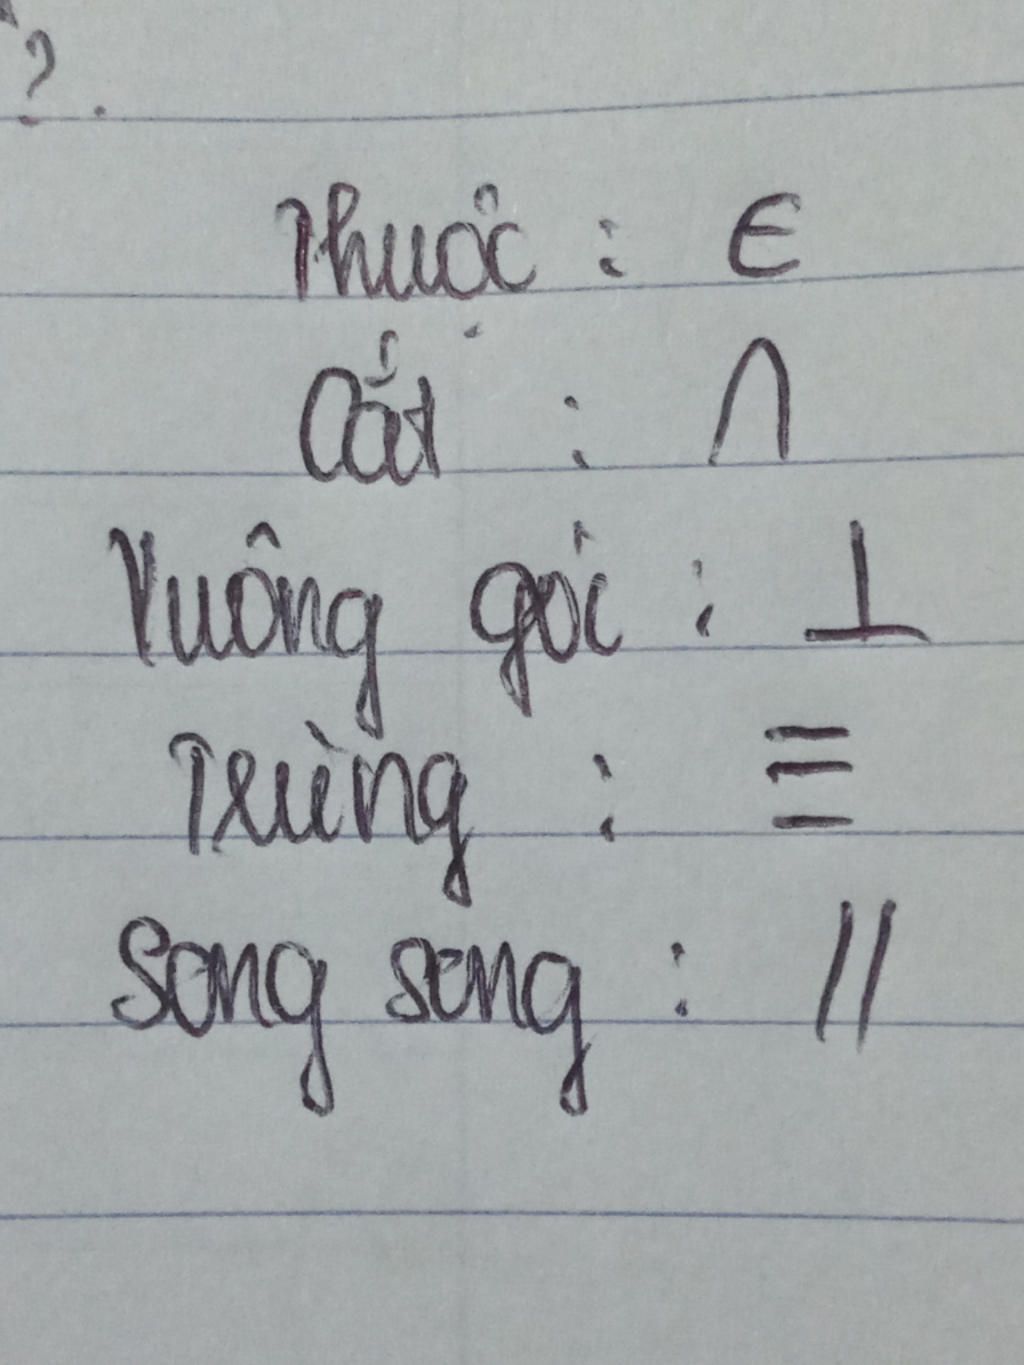 ?.
Thuộc : ∈
Cắt : ∩
Vuông góc : ⊥
Trùng : ≡
Song song : //